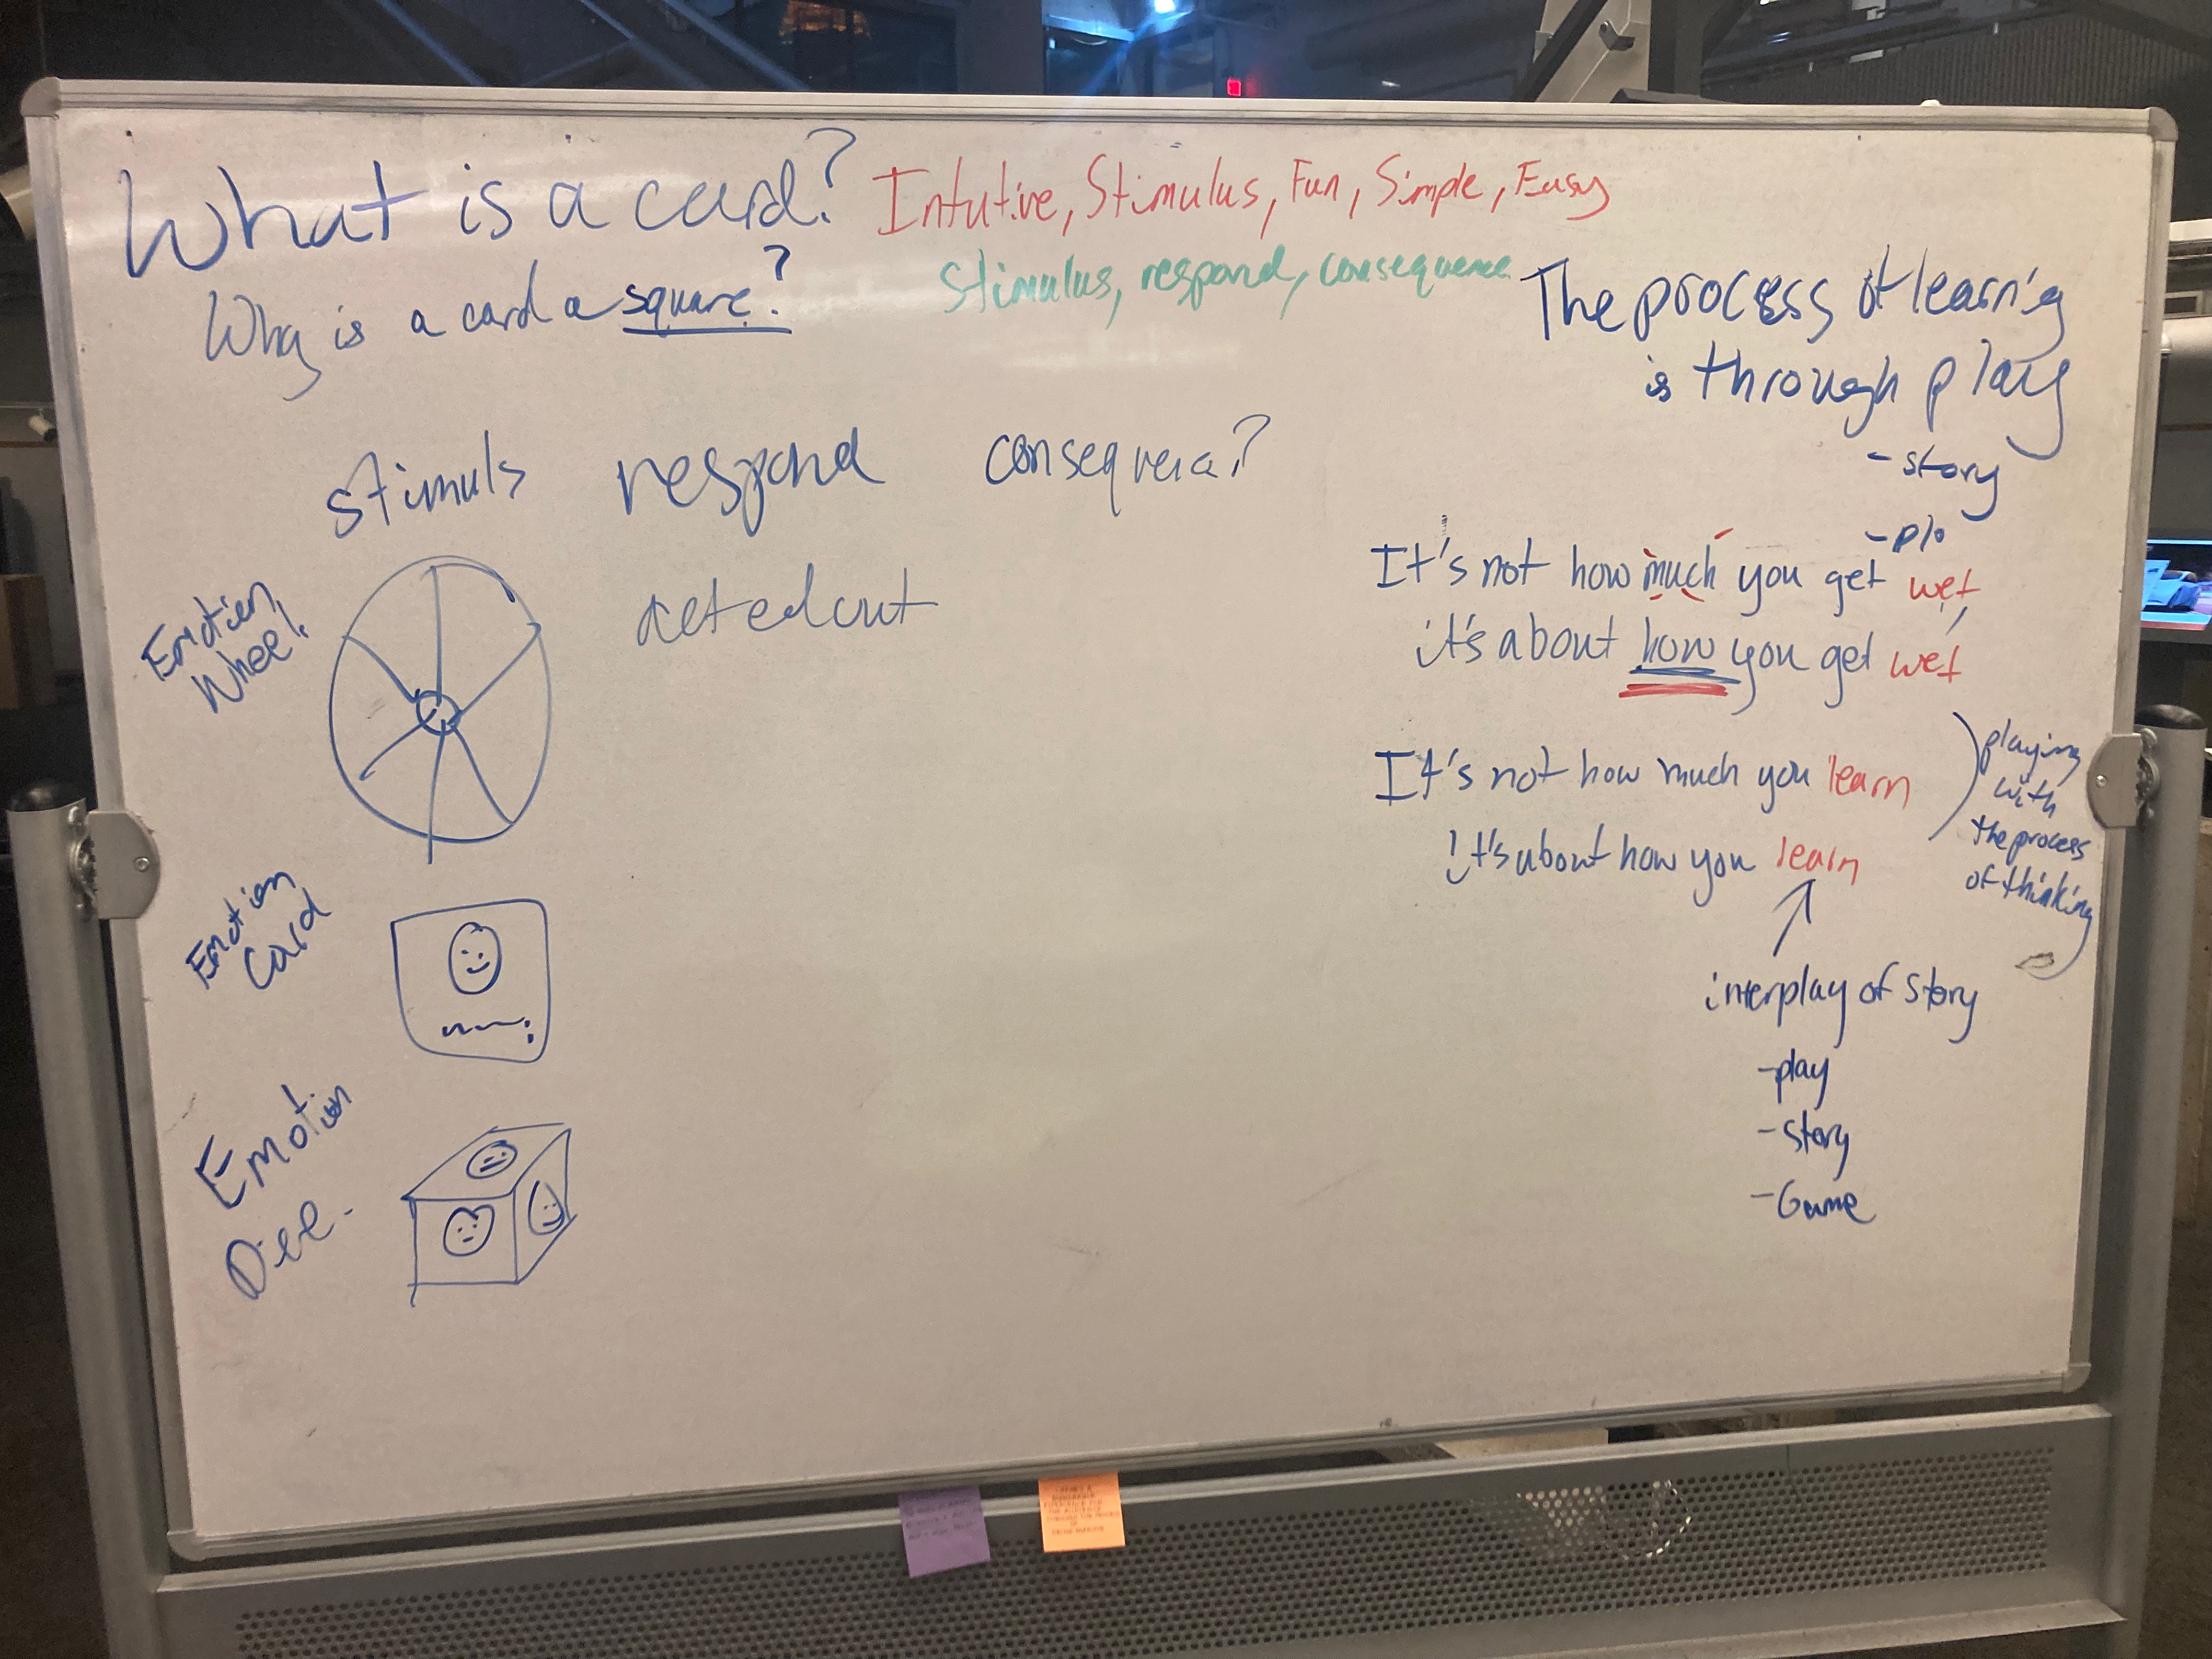 What is a card?
Intutive, Stimulus, Fun, Simple, Easy
Why is a card a square?
Stimulus, respond, consequence
The process of learnig
is through play
- story
- plo
stimuls respond consequence?
Emotion
Wheel.
acted out
It's not how much you get wet
it's about how you get wet
It's not how much you learn
it's about how you learn
playing
with
the process
of thinking
interplay of story
- play
- story
- Game
Emotion
Card
Emotion
Dice.